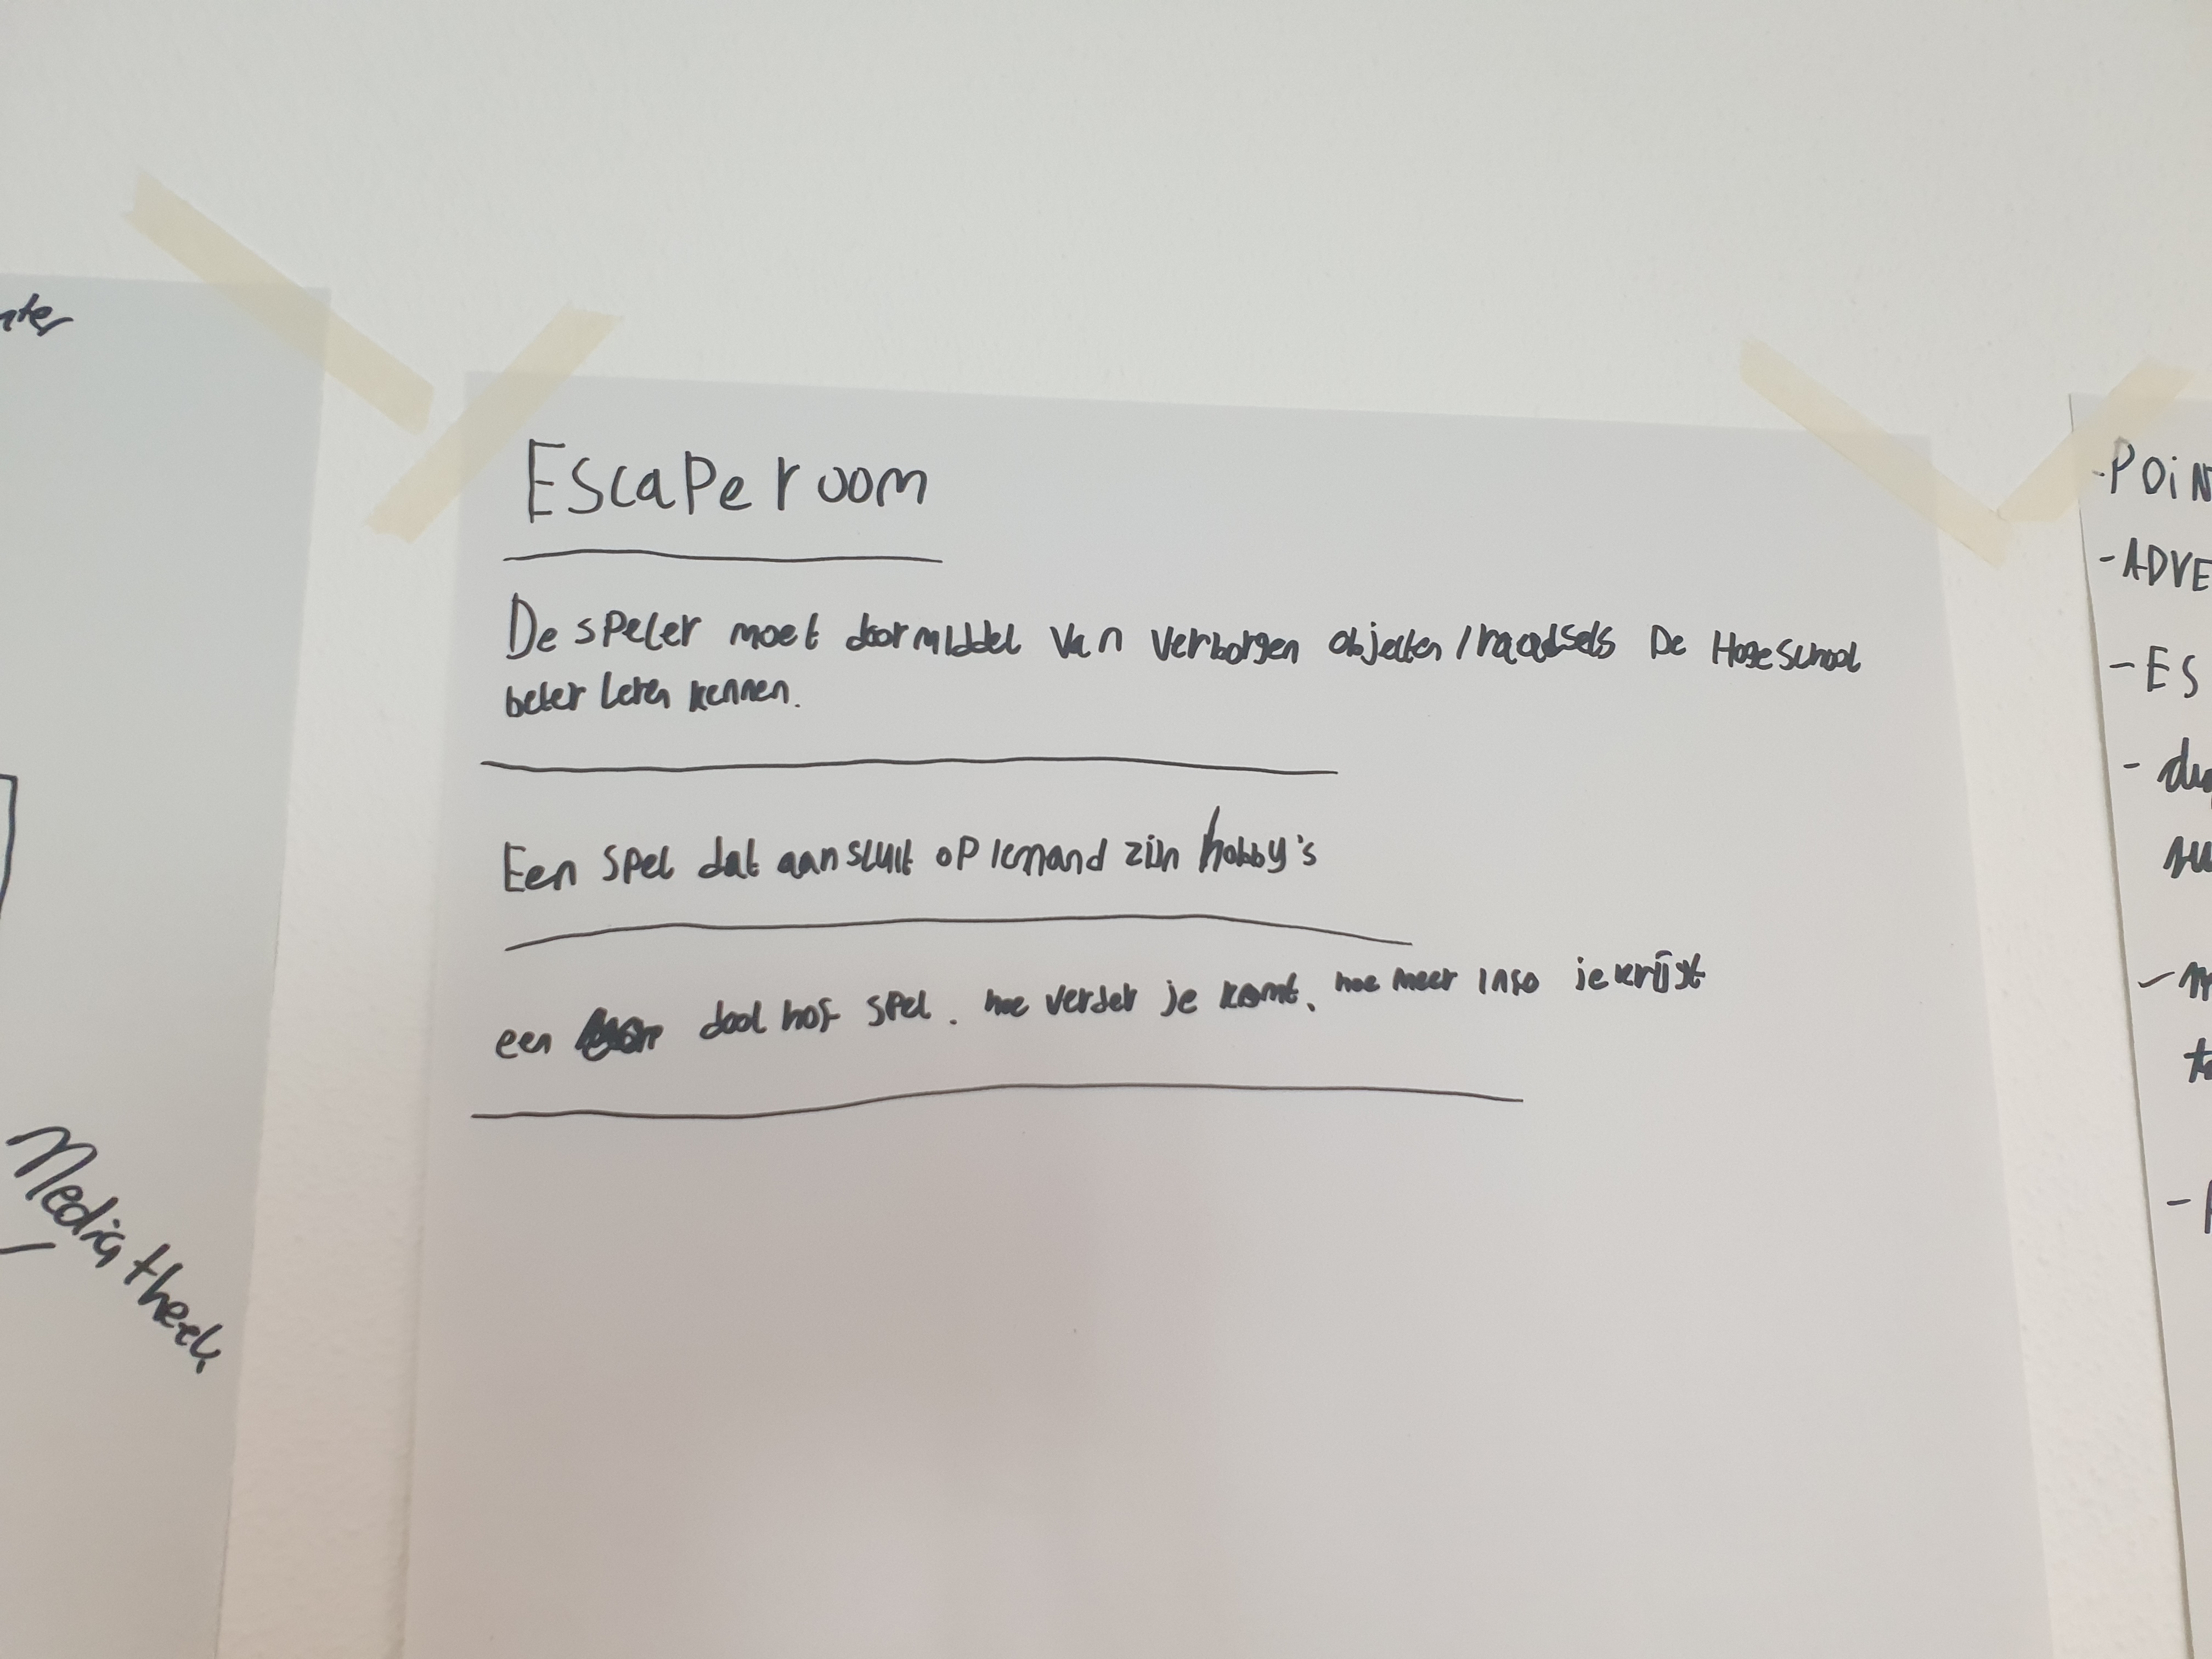 Escape room
De speler moet doormiddel van verborgen objecten / raadsels De Hogeschool
beter leren kennen.
Een spel dat aansluit op iemand zijn hobby's
een dool hof spel. hoe verder je komt, hoe meer info je krijgt
Media theek
- POiN
- ADVE
- ES